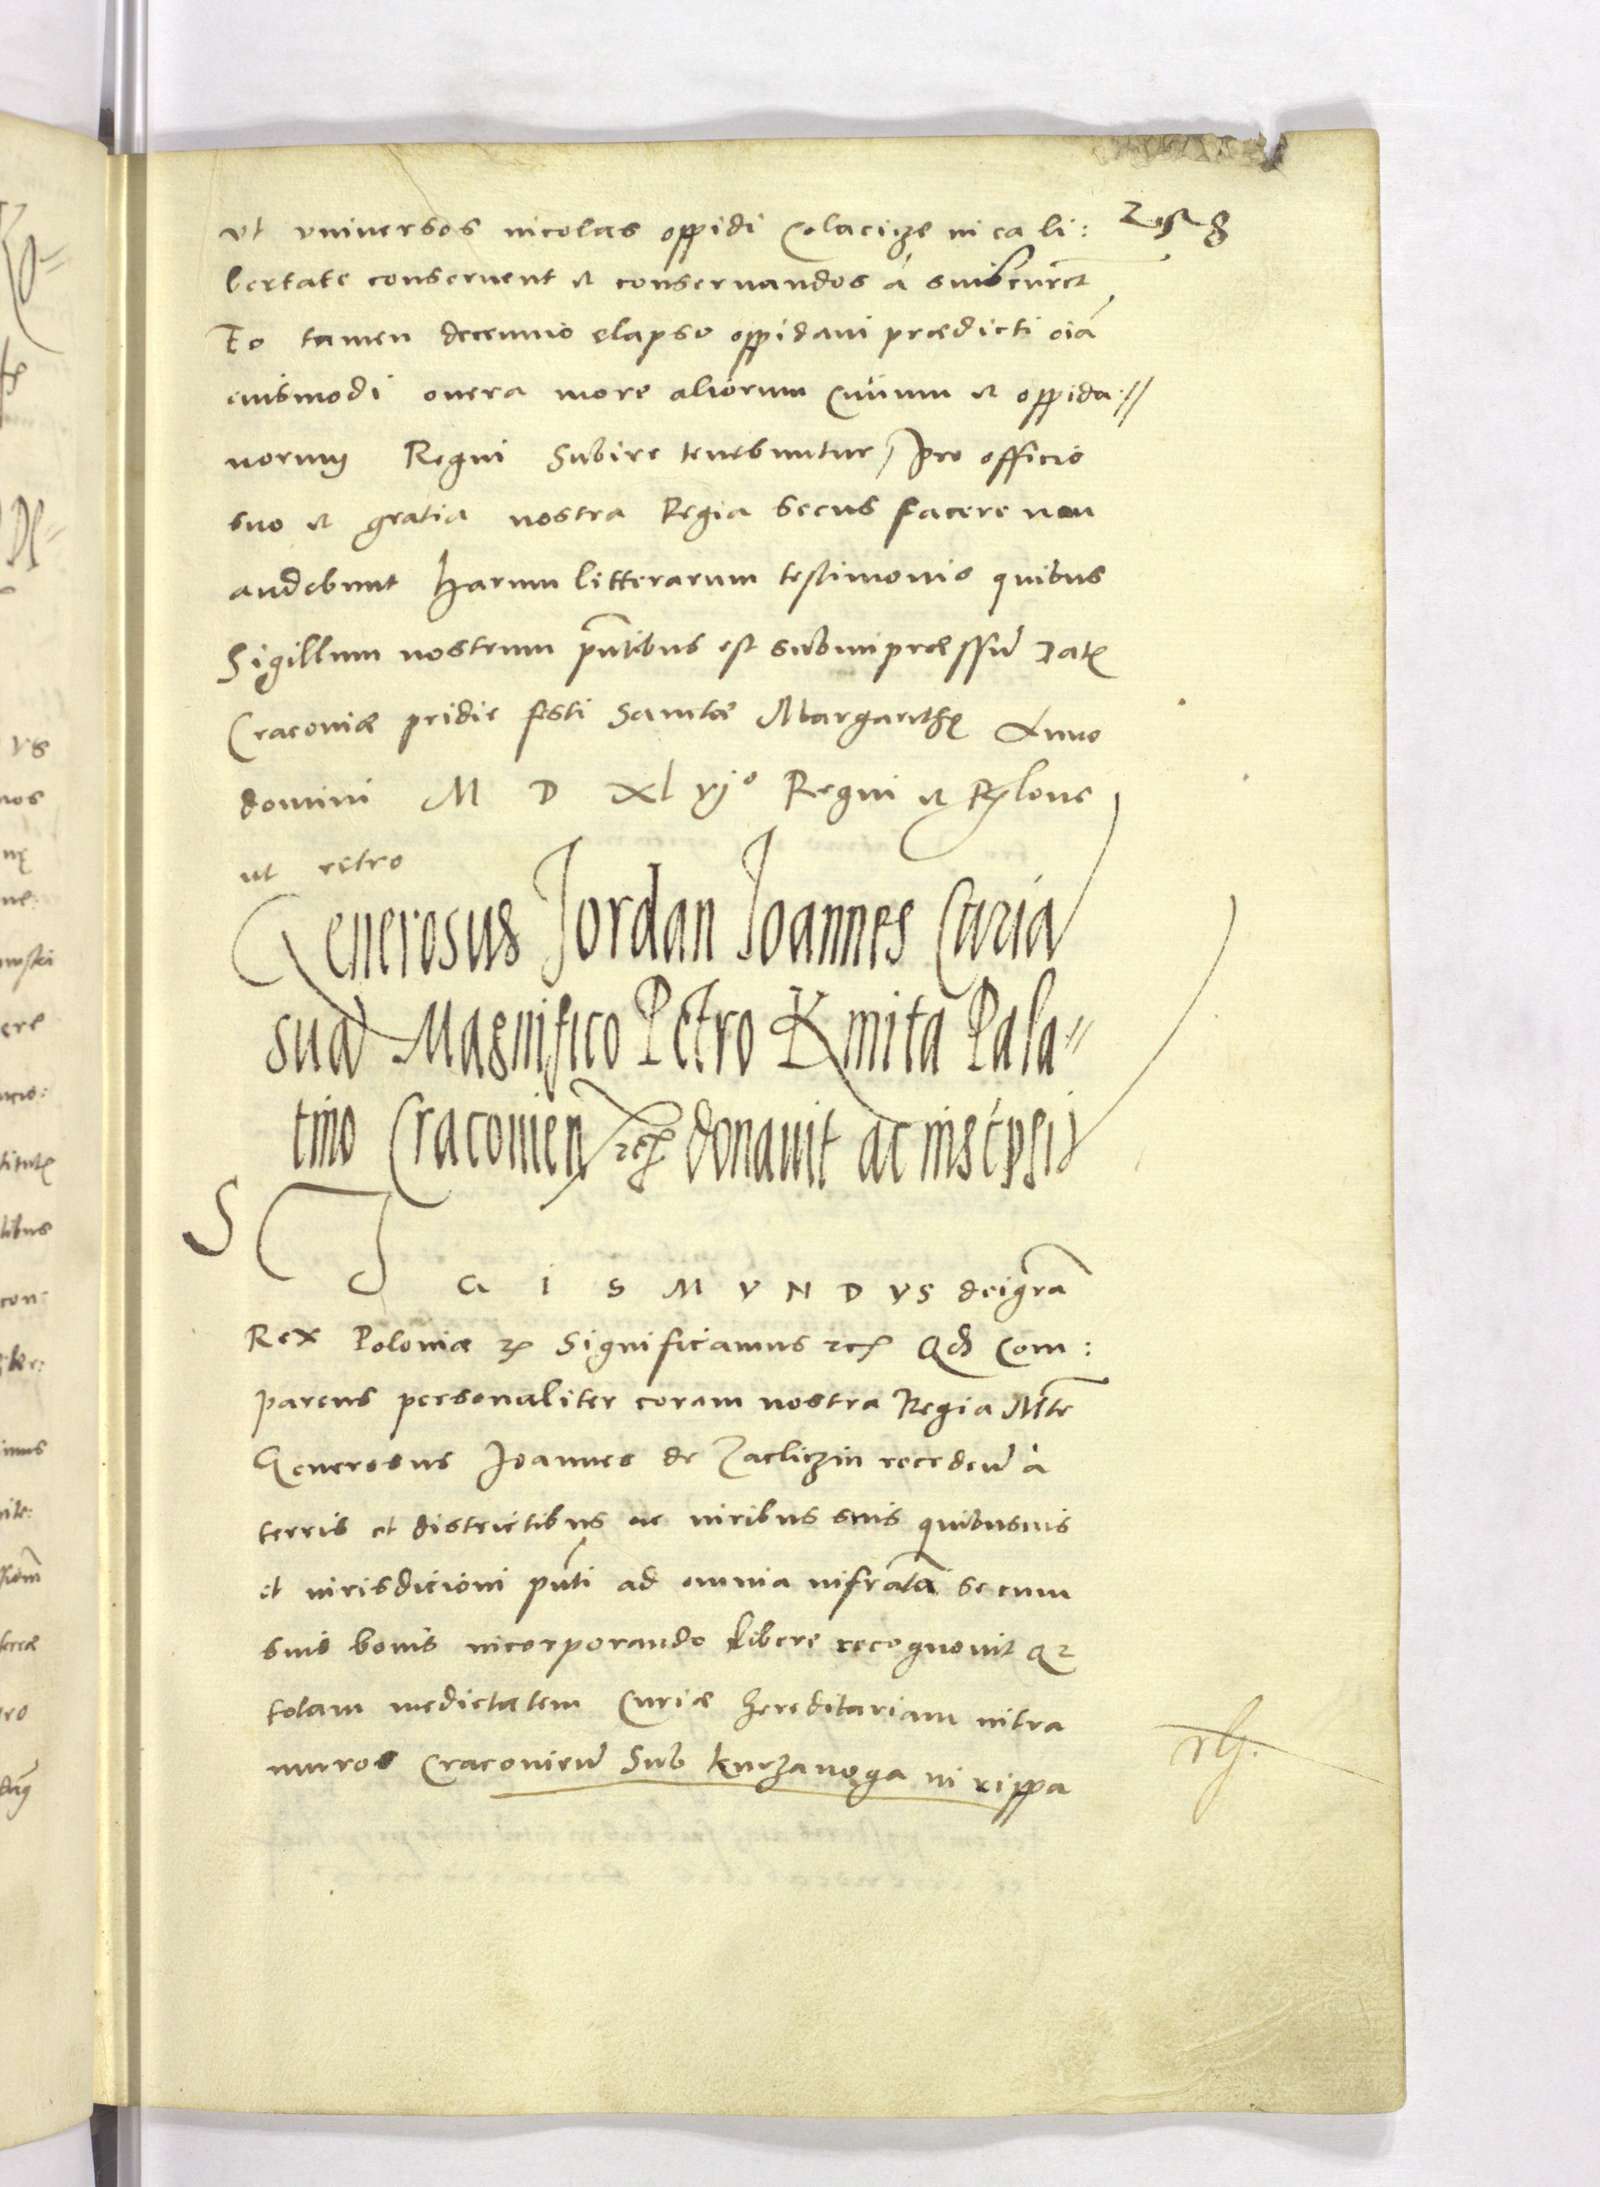 vt vniuersos incolas oppidi Colacize in ea li:
bertate conseruent et conseruandos a suis curent
Eo tamen decennio elapso oppidani prædicti oia
eiusmodi onera more aliorum Ciuium et oppida//
norum Regni subire tenebuntur, Pro officio
suo et gratia nostra Regia secus facere non
audebunt Harum litterarum testimonio quibus
Sigillum nostrum pntibus est subimpræssu Datę
Cracouiæ pridie festi Sanctæ Margarethę Anno
domini M D Xl vjo Regni et
ut retro
Generosus Jordan Joannes Curia
sua Magnifico Petro Kmita Pala"
tino Cracouien etc donauit ac inscpsit
S J G I S M V N D V S dei gra
Rex Poloniæ etc Significamus etc Qd Com:
parens personaliter coram nostra Regia Mte
Generosus Joannes de Zacliczin recedens à
terris et districtibus ac iuribus suis quibusuis
et iurisdicioni pnti ad omnia infrata se cum
suis bonis incorporando libere recognouit Qz
totam medietatem Curiæ hereditariam intra
muros Cracouien Sub kurzanoga in rippa